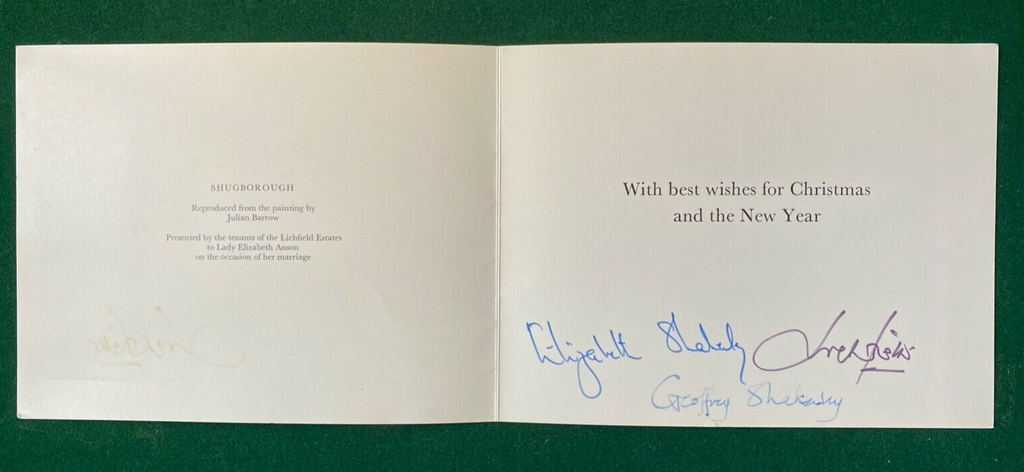 SHUGBOROUGH
Reproduced from the painting by
Julian Barrow
Presented by the tenants of the Lichfield Estates
to Lady Elizabeth Anson
on the occasion of her marriage
With best wishes for Christmas
and the New Year
Elizabeth
Geoffrey